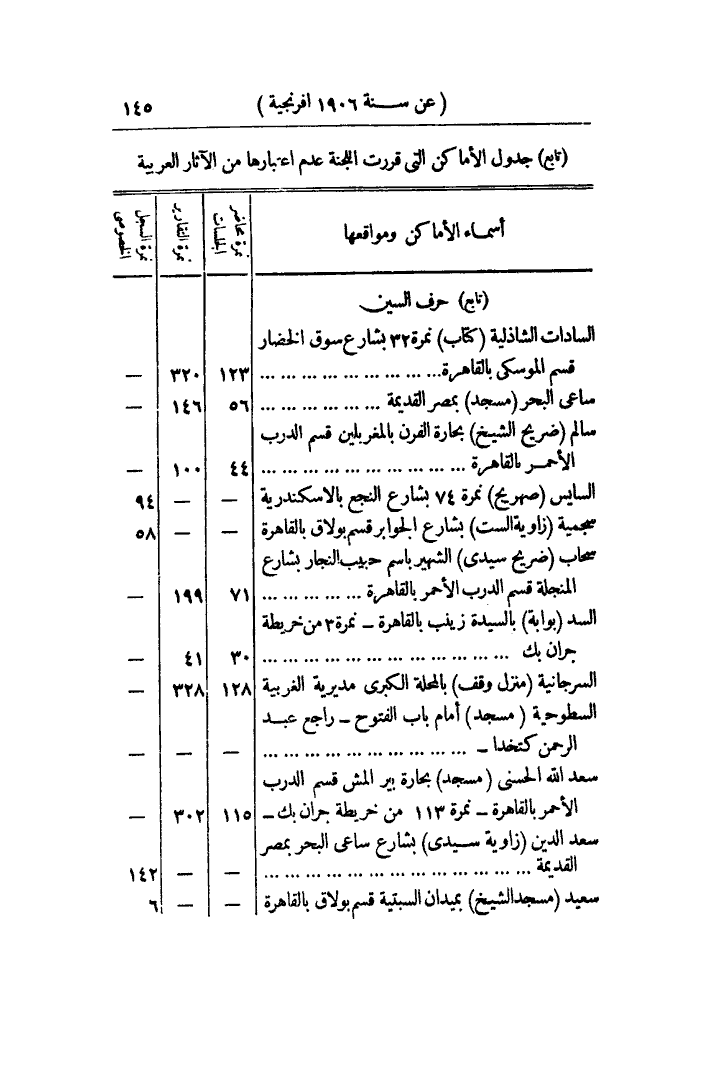 (عن سنة ١٩٠٦ افرنجية) ١٤٥
(تابع) جدول الأماكن التى قررت اللجنة عدم اعتبارها من الآثار العربية
أسماء الأماكن ومواقعها نمرة محاضر الجلسات نمرة التقارير نمرة السجل الخصوصى
(تابع) حرف السين
السادات الشاذلية (كتاب) نمرة ٣٢ بشارع سوق الخضار
قسم الموسكى بالقاهرة... ... ... ... ... ... ... ... ... ١٢٣ ٣٢٠ —
ساعى البحر (مسجد) بمصر القديمة ... ... ... ... ... ... ٥٦ ١٤٦ —
سالم (ضريح الشيخ) بحارة الفرن بالمغربلين قسم الدرب
الأحمر بالقاهرة ... ... ... ... ... ... ... ... ... ... ٤٤ ١٠٠ —
السايس (صهريج) نمرة ٧٤ بشارع النجع بالاسكندرية — — ٩٤
سجمية (زاوية الست) بشارع الجوابر قسم بولاق بالقاهرة — — ٥٨
سحاب (ضريح سيدى) الشهير باسم حبيب النجار بشارع
المنجلة قسم الدرب الأحمر بالقاهرة ... ... ... ... ... ٧١ ١٩٩ —
السد (بوابة) بالسيدة زينب بالقاهرة — نمرة ٣ من خريطة
جران بك ... ... ... ... ... ... ... ... ... ... ... ... ٣٠ ٤١ —
السرجانية (منزل وقف) بالمحلة الكبرى مديرية الغربية ١٢٨ ٣٢٨ —
السطوحية (مسجد) أمام باب الفتوح — راجع عبد
الرحمن كتخدا — ... ... ... ... ... ... ... ... ... ... — — —
سعد الله الحسنى (مسجد) بحارة بير المش قسم الدرب
الأحمر بالقاهرة — نمرة ١١٣ من خريطة جران بك — ١١٥ ٣٠٢ —
سعد الدين (زاوية سيدى) بشارع ساعى البحر بمصر
القديمة ... ... ... ... ... ... ... ... ... ... ... ... ... — — ١٤٢
سعيد (مسجد الشيخ) بميدان السبتية قسم بولاق بالقاهرة — — ٦